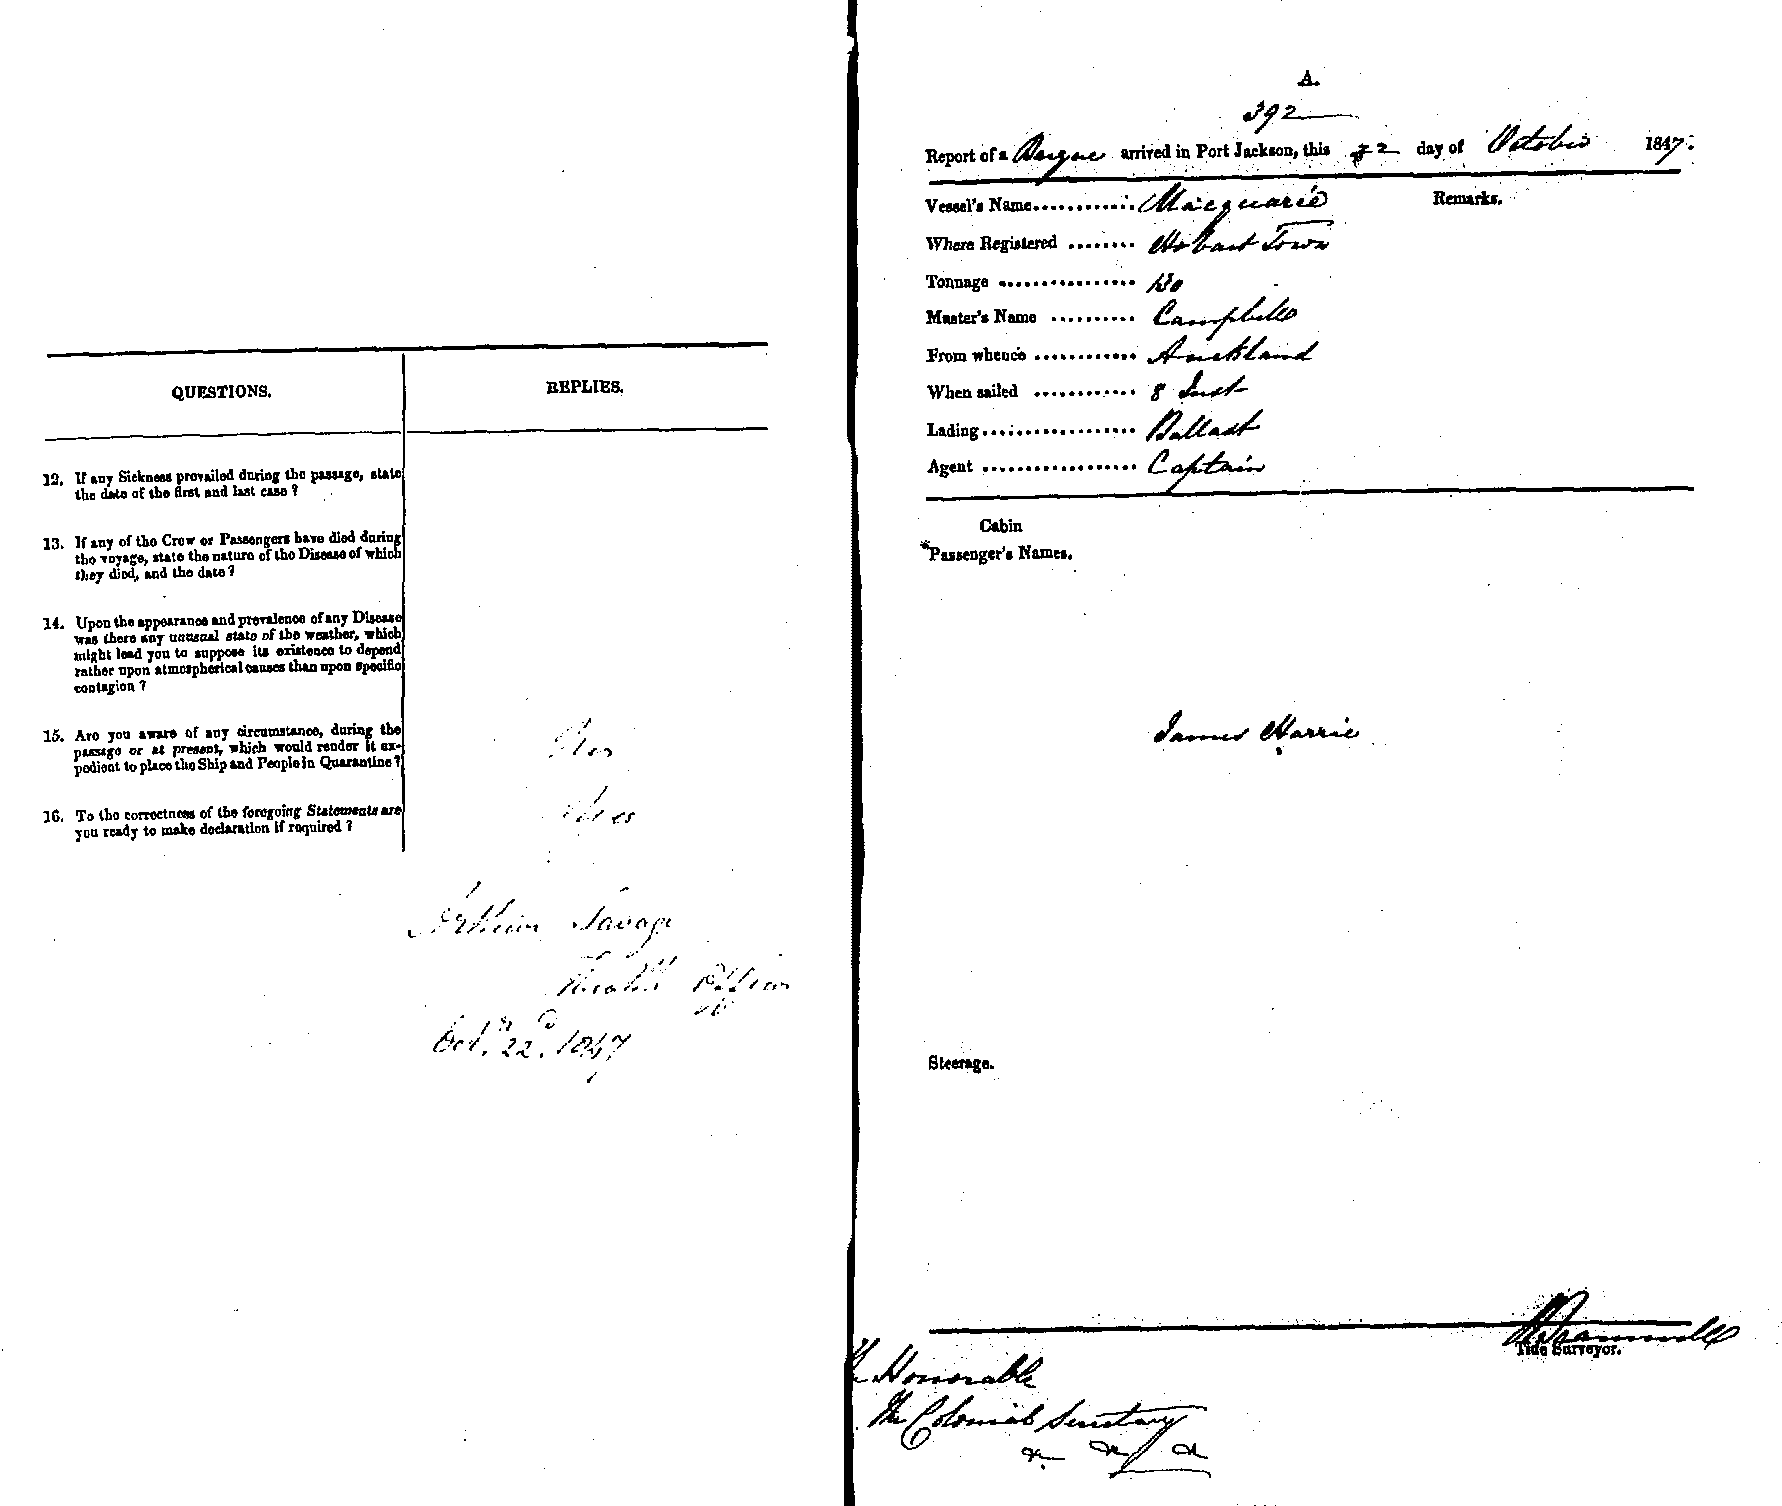 QUESTIONS.
REPLIES.
12. If any Sickness prevailed during the passage, state
the date of the first and last case?
13. If any of the Crew or Passengers have died during
the voyage, state the nature of the Disease of which
they died, and the date?
14. Upon the appearance and prevalence of any Disease
was there any unusual state of the weather, which
might lead you to suppose its existence to depend
rather upon atmospherical causes than upon specific
contagion?
15. Are you aware of any circumstance, during the
passage or at present, which would render it ex-
pedient to place the Ship and People in Quarantine?
16. To the correctness of the foregoing Statements are
you ready to make declaration if required?
Yes
Arthur Savage
Health Officer
Octr. 22d. 1847
A.
392
Report of a Barque arrived in Port Jackson, this 22 day of October 1847.
Vessel's Name............ Macquarie
Remarks.
Where Registered ........ Hobart Town
Tonnage ................ 130
Master's Name .......... Campbell
From whence ............ Auckland
When sailed ............ 8 Inst
Lading.................. Ballast
Agent .................. Captain
Cabin
*Passenger's Names.
James Harris
Steerage.
Bramwell
Tide Surveyor.
Honorable
The Colonial Secretary